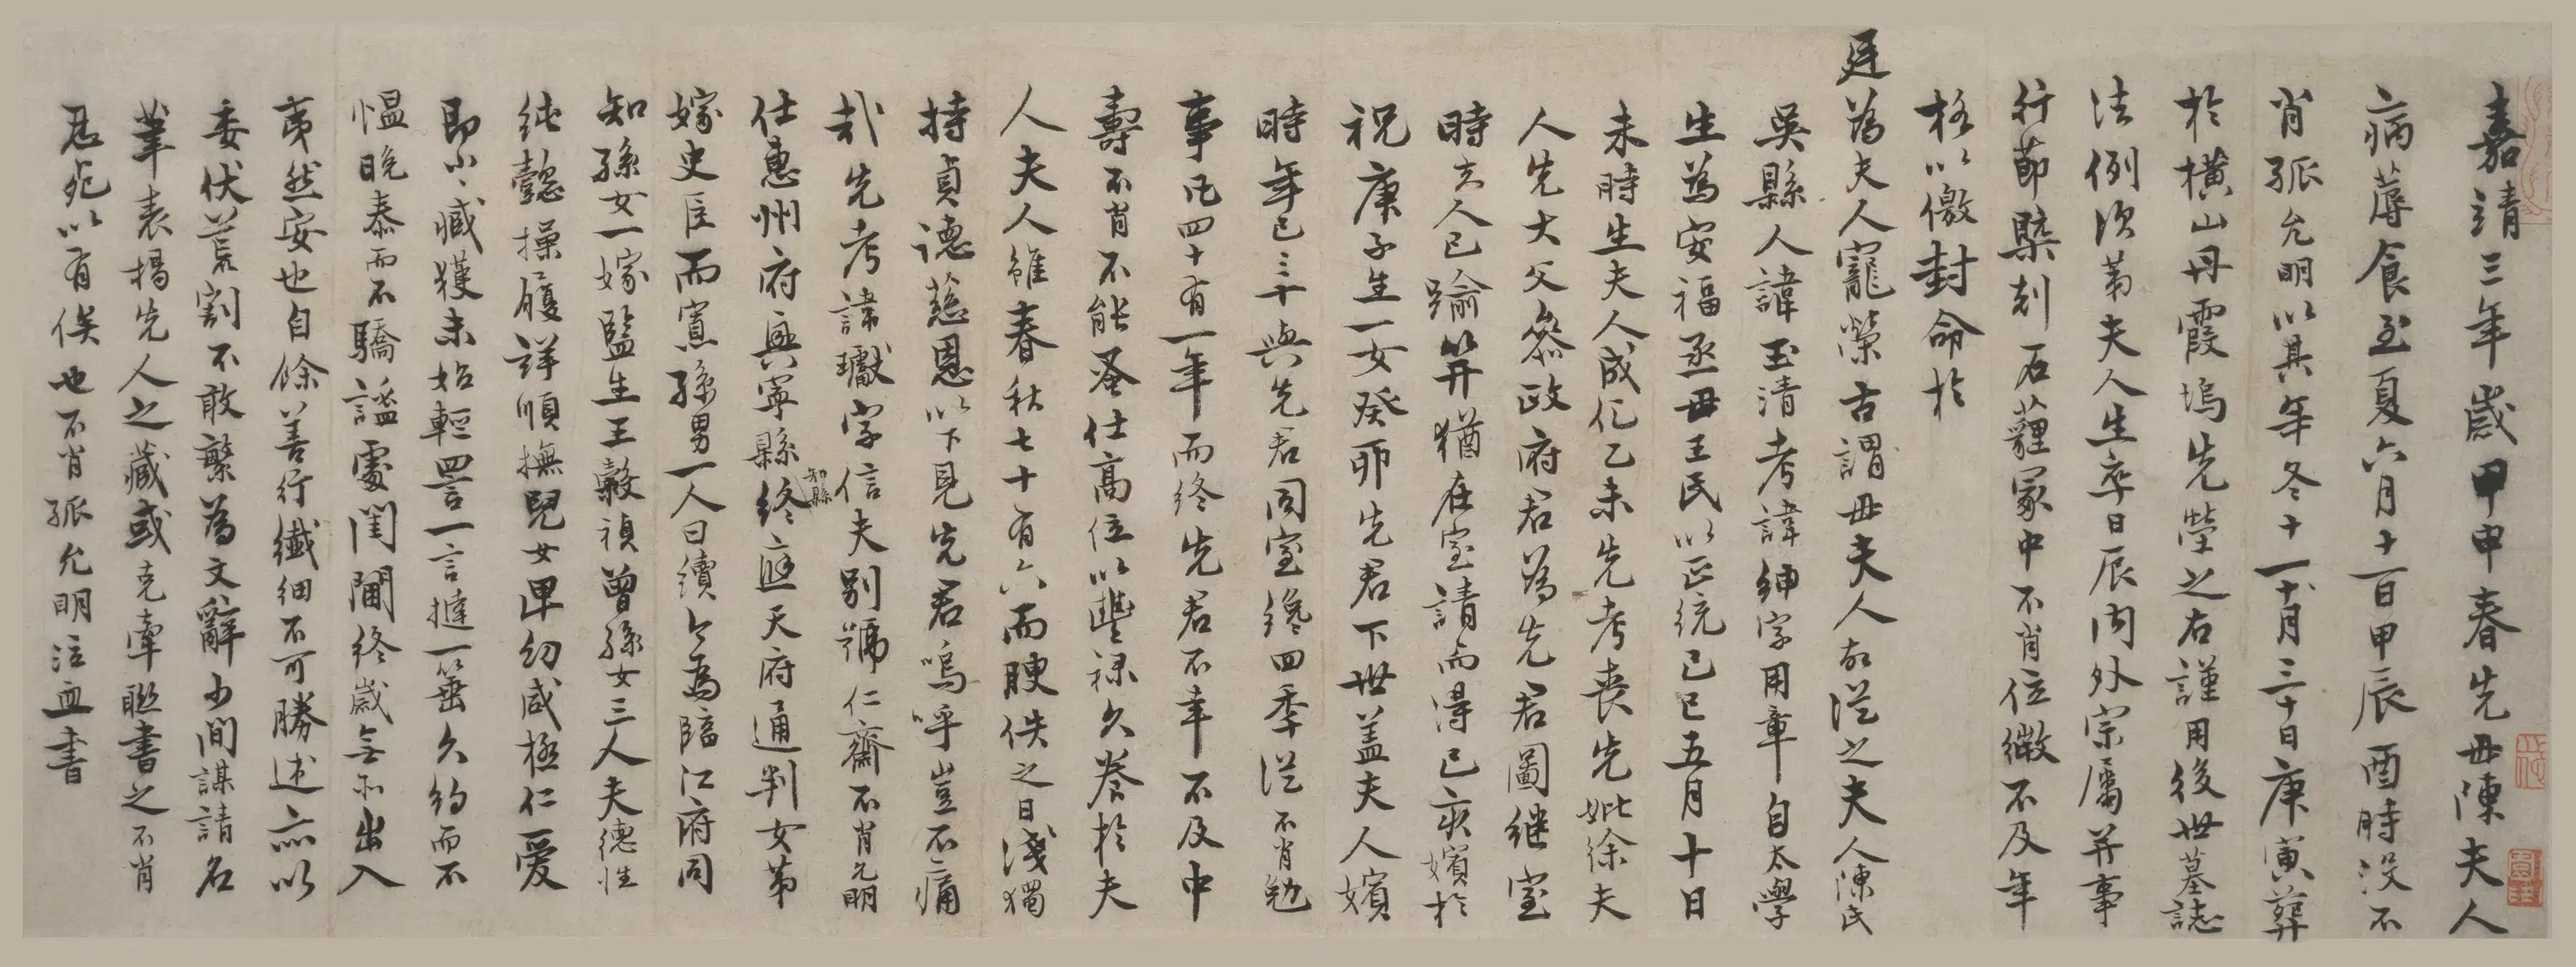 嘉靖三年歲甲申春先母陳夫人
病蓐食至夏六月十一日甲辰酉時沒不
肖孤允明以其年冬十一月三十日庚寅葬
於橫山丹霞塢先塋之右謹用後世墓誌
法例次第夫人生卒日辰內外宗屬并事
行節槩刻石薶冢中不肖位微不及年
格以徼封命於
廷為夫人寵榮古謂母夫人故從之夫人陳氏
吳縣人諱玉清考諱紳字用章自太學
生為安福丞母王氏以正統己巳五月十日
未時生夫人成化乙未先考喪先妣徐夫
人先大父參政府君為先君圖繼室
時夫人已踰笄猶在室請而得己亥嬪於
祝庚子生一女癸卯先君下世蓋夫人嬪
時年已三十與先君同室纔四季從不肖勉
事凡四十有一年而終先君不幸不及中
壽不肖不能蚤仕高位以豐祿久養於夫
人夫人雖春秋七十有六而腴佚之日淺獨
持貞德慈恩以下見先君嗚呼豈不痛
哉先考諱瓛字信夫別號仁齋不肖允明
仕惠州府興寧縣知縣終應天府通判女第
嫁史臣而寡孫男一人曰續今為臨江府同
知孫女一嫁監生王穀禎曾孫女三人夫德性
純懿操履詳順撫兒女卑幼咸極仁愛
即小小臧獲未始輕詈一言撻一箠久約而不
慍晚泰而不驕謐處閨閫終歲無所出入
夷然安也自餘善行纖細不可勝述亦以
委伏荒割不敢繁為文辭少間謀請名
筆表揚先人之藏或克牽聯書之不肖
忍死以有俟也不肖孤允明泣血書